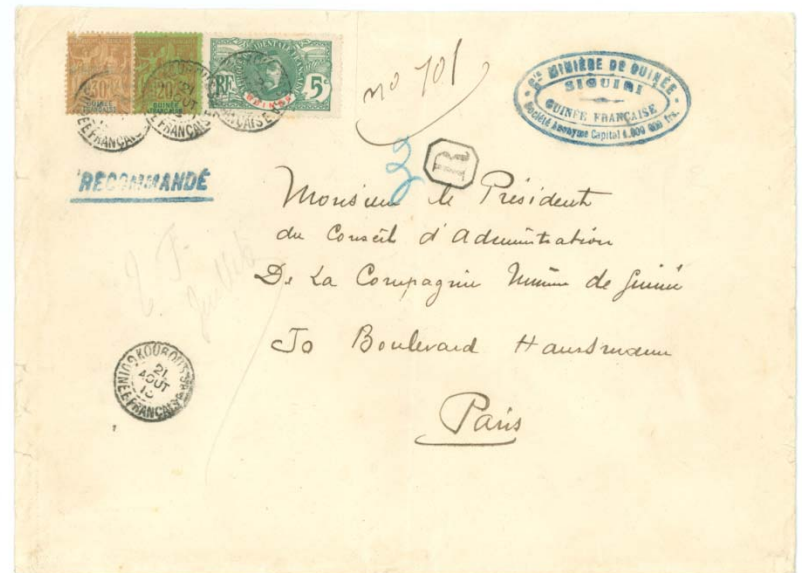 30
GUINÉE
FRANÇAISE
20
GUINÉE
FRANÇAISE
RF
5c
GUINÉE
no 101
Cie MINIÈRE DE GUINÉE
SIGUIRI
GUINÉE FRANÇAISE
Société Anonyme Capital 4.000 000 frs.
R
3
RECOMMANDÉ
Monsieur le Président
du Conseil d'Administration
De La Compagnie Minière de Guinée
Boulevard Haussmann
Paris
KOUROUSSA
21
AOUT
10
GUINÉE FRANÇAISE